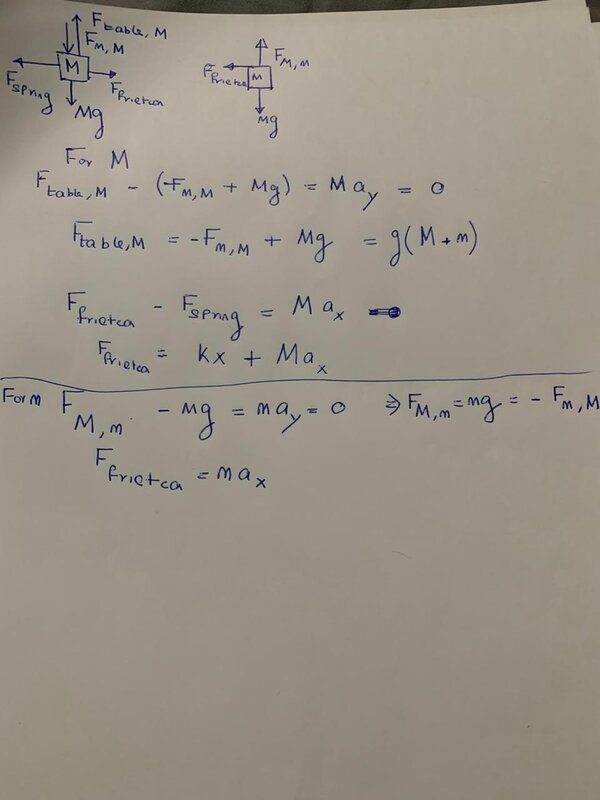 F table, M
F m, M
M
F spring
F frietca
Mg
F M, m
F frietca
M
Mg
For M
F table, M - (-F m, M + Mg) = M a y = 0
F table, M = -F m, M + Mg = g(M + m)
F frietca - F spring = M a x ⇒
F frietca = Kx + Ma x
For m F M, m - mg = m a y = 0 ⇒ F M, m = mg = - F m, M
F frietca = m a x